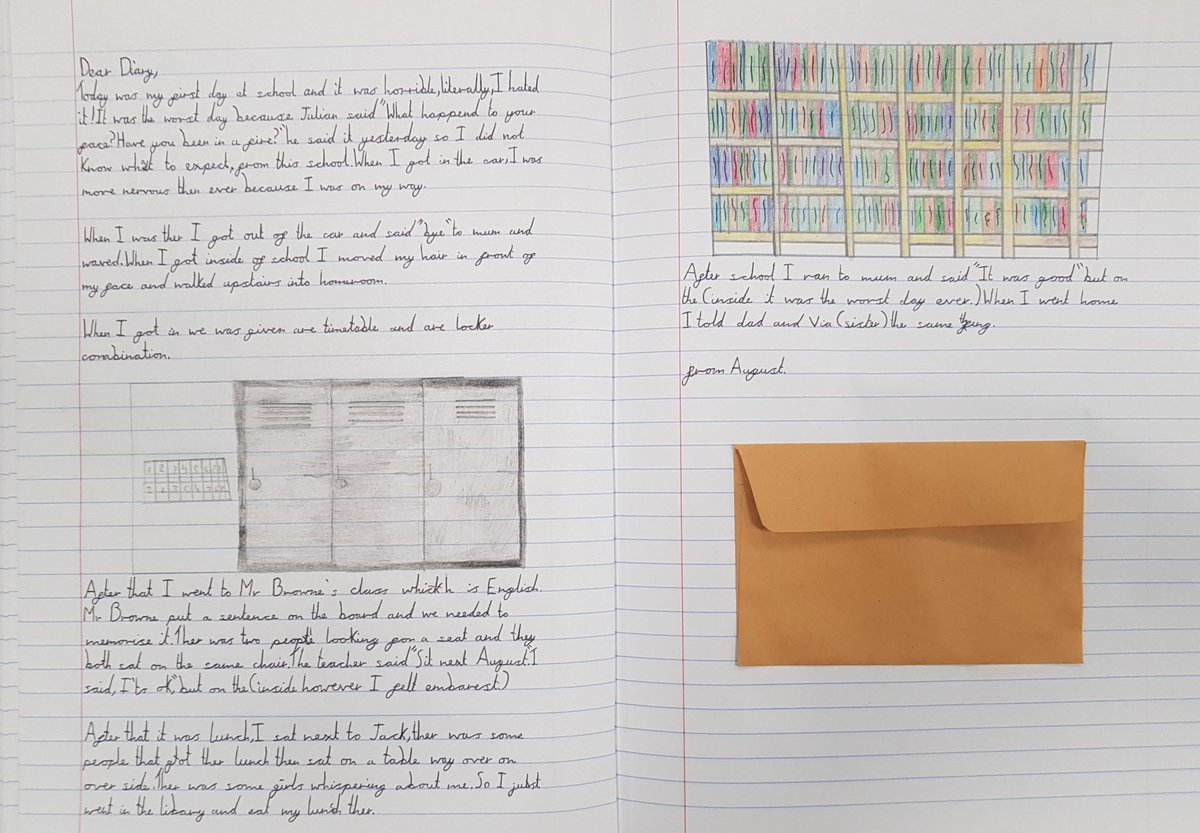 Dear Diary,
Today was my first day at school and it was horrible, literally, I hated
it! It was the worst day because Julian said "What happend to your
face? Have you been in a fire?" he said it yesterday so I did not
Know what to expect, from this school. When I got in the car, I was
more nervous then ever because I was on my way.
When I was ther I got out of the car and said "bye" to mum and
waved. When I got inside of school I moved my hair in front of
my face and walked upstairs into homeroom.
When I got in we was given are timetable and are locker
combination.
After that I went to Mr Browne's class which is English.
Mr Browne put a sentence on the board and we needed to
memorise it. Ther was two people looking for a seat and they
both sat on the same chair. The teacher said "Sit next August." I
said, I'ts ok", but on the (inside however I fell embarest.)
After that it was lunch, I sat next to Jack, ther was some
people that got ther lunch then sat on a table way over on
over side. Ther was some girls whispering about me. So I just
went in the libary and eat my lunch ther.
After school I ran to mum and said "It was good" but on
the (inside it was the worst day ever.) When I went home
I told dad and Via (sister) the same thing.
from August.